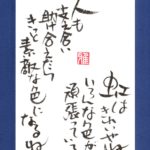 虹は
いろんな色が
頑張っていて
人も
支え合い
助け合えたら
きっと素敵な
色になるね